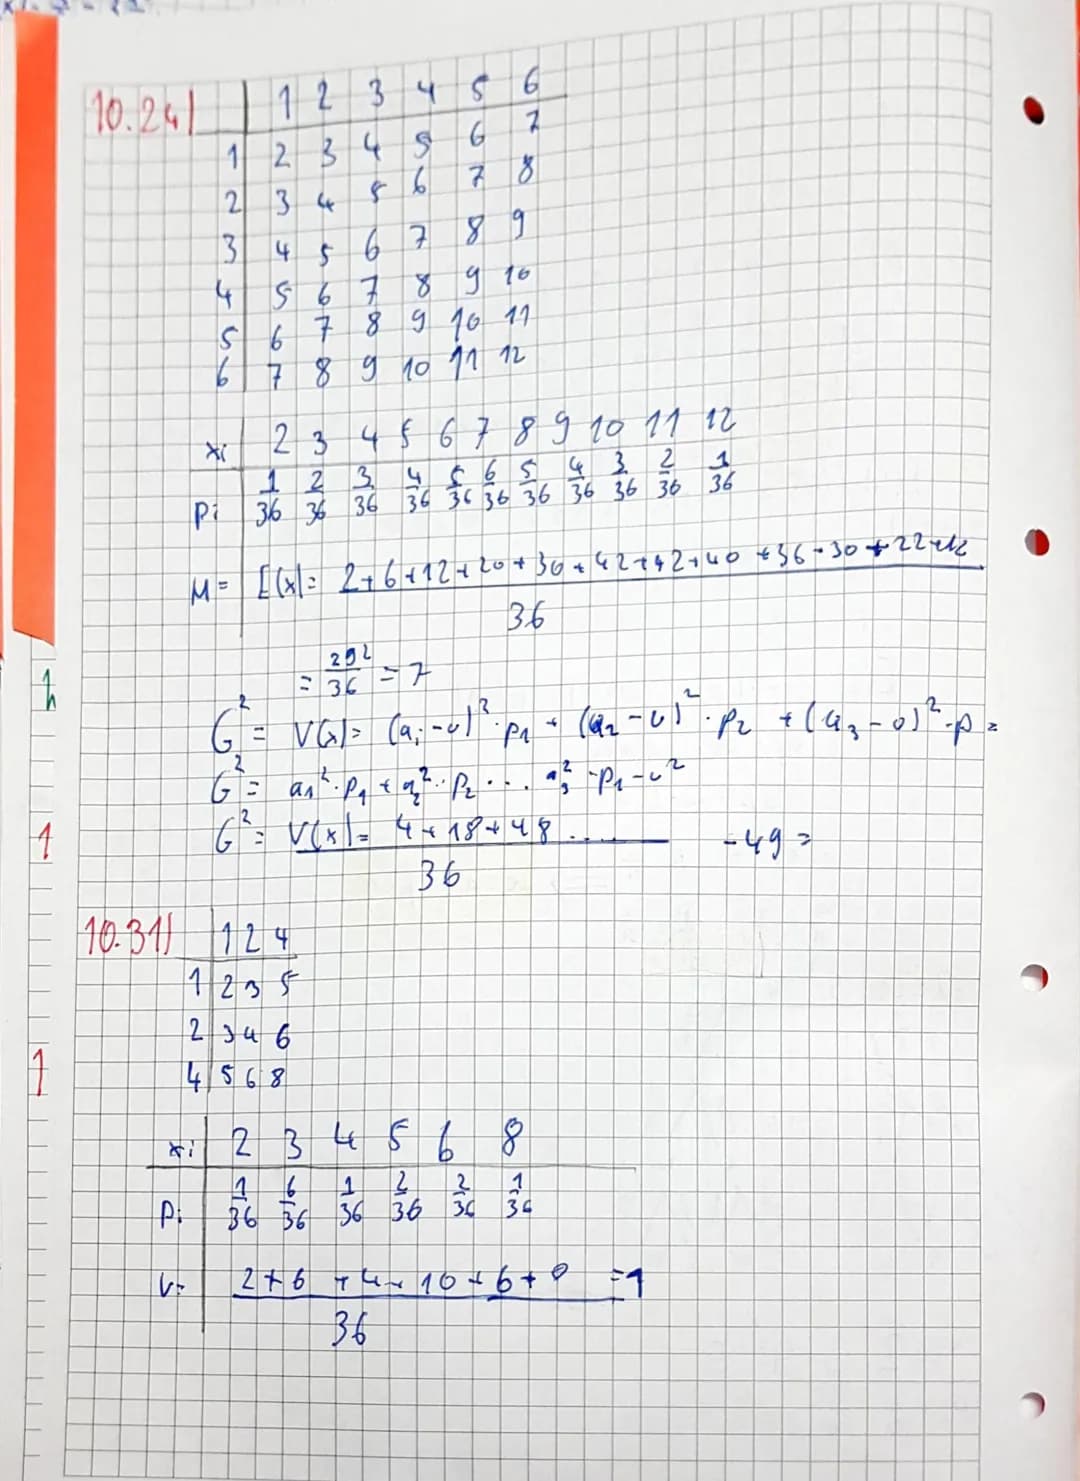 10.24) | 1 2 3 4 5 6
1 | 2 3 4 5 6 7
2 | 3 4 5 6 7 8
3 | 4 5 6 7 8 9
4 | 5 6 7 8 9 10
5 | 6 7 8 9 10 11
6 | 7 8 9 10 11 12
xi | 2 3 4 5 6 7 8 9 10 11 12
pi | 1/36 2/36 3/36 4/36 5/36 6/36 5/36 4/36 3/36 2/36 1/36
M = E(x)= 2+6+12+20+30+42+42+40+36+30+22+12 / 36
= 252/36 = 7
G² = V(x)= (a₁-u)²·p₁ + (a₂-u)²·p₂ + (a₃-u)²·p =
G² = a₁²·p₁ + a₂²·p₂ ... a₃²·p₁-u²
G² = V(x)= 4+18+48 ...... / 36 -49 =
10.31) | 1 2 4
1 | 2 3 5
2 | 3 4 6
4 | 5 6 8
xi | 2 3 4 5 6 8
pi | 1/36 6/36 1/36 2/36 2/36 1/36
V= 2+6+4+10+6+8 / 36 =1
h
1
1